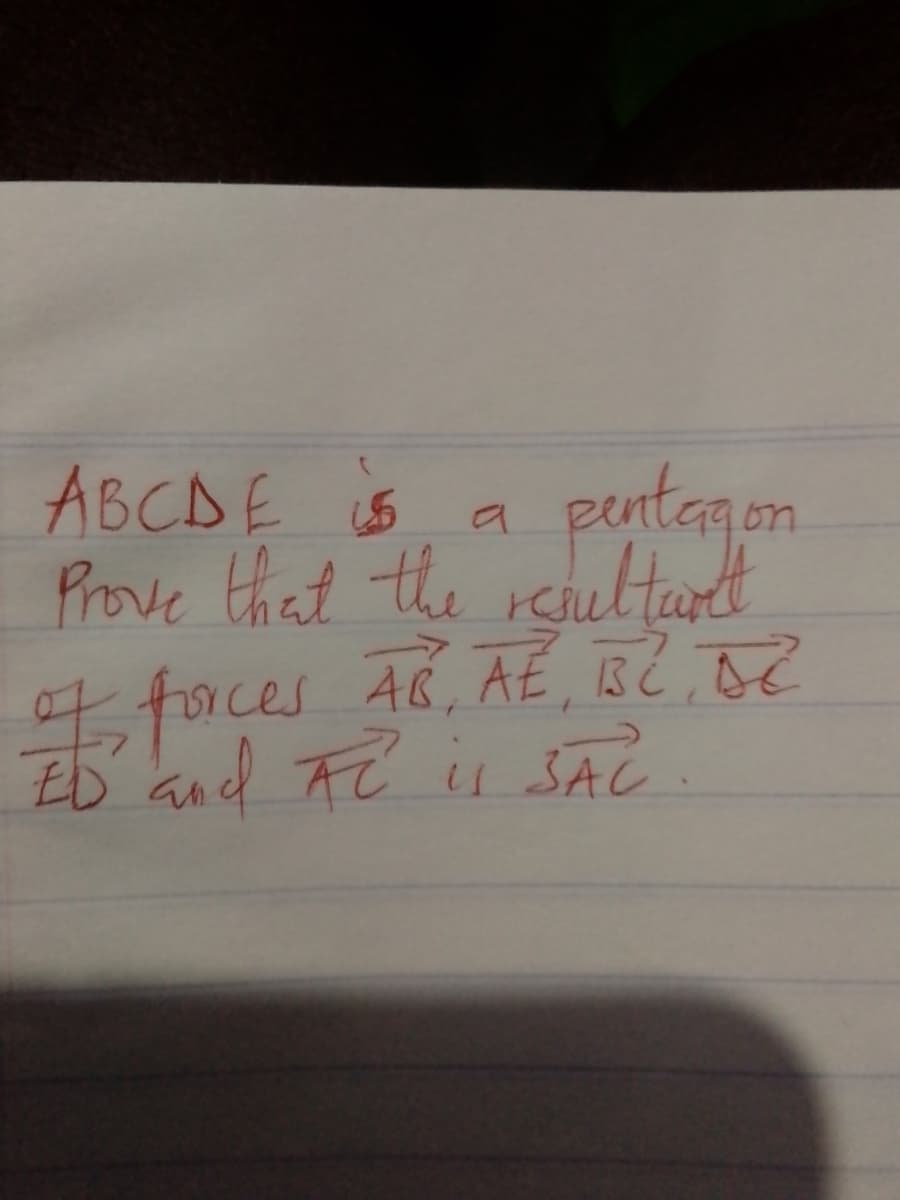 ABCDE is a pentagon
Prove that the resultant
of forces AB, AE, BC, DC
ED and AC is 3AC.